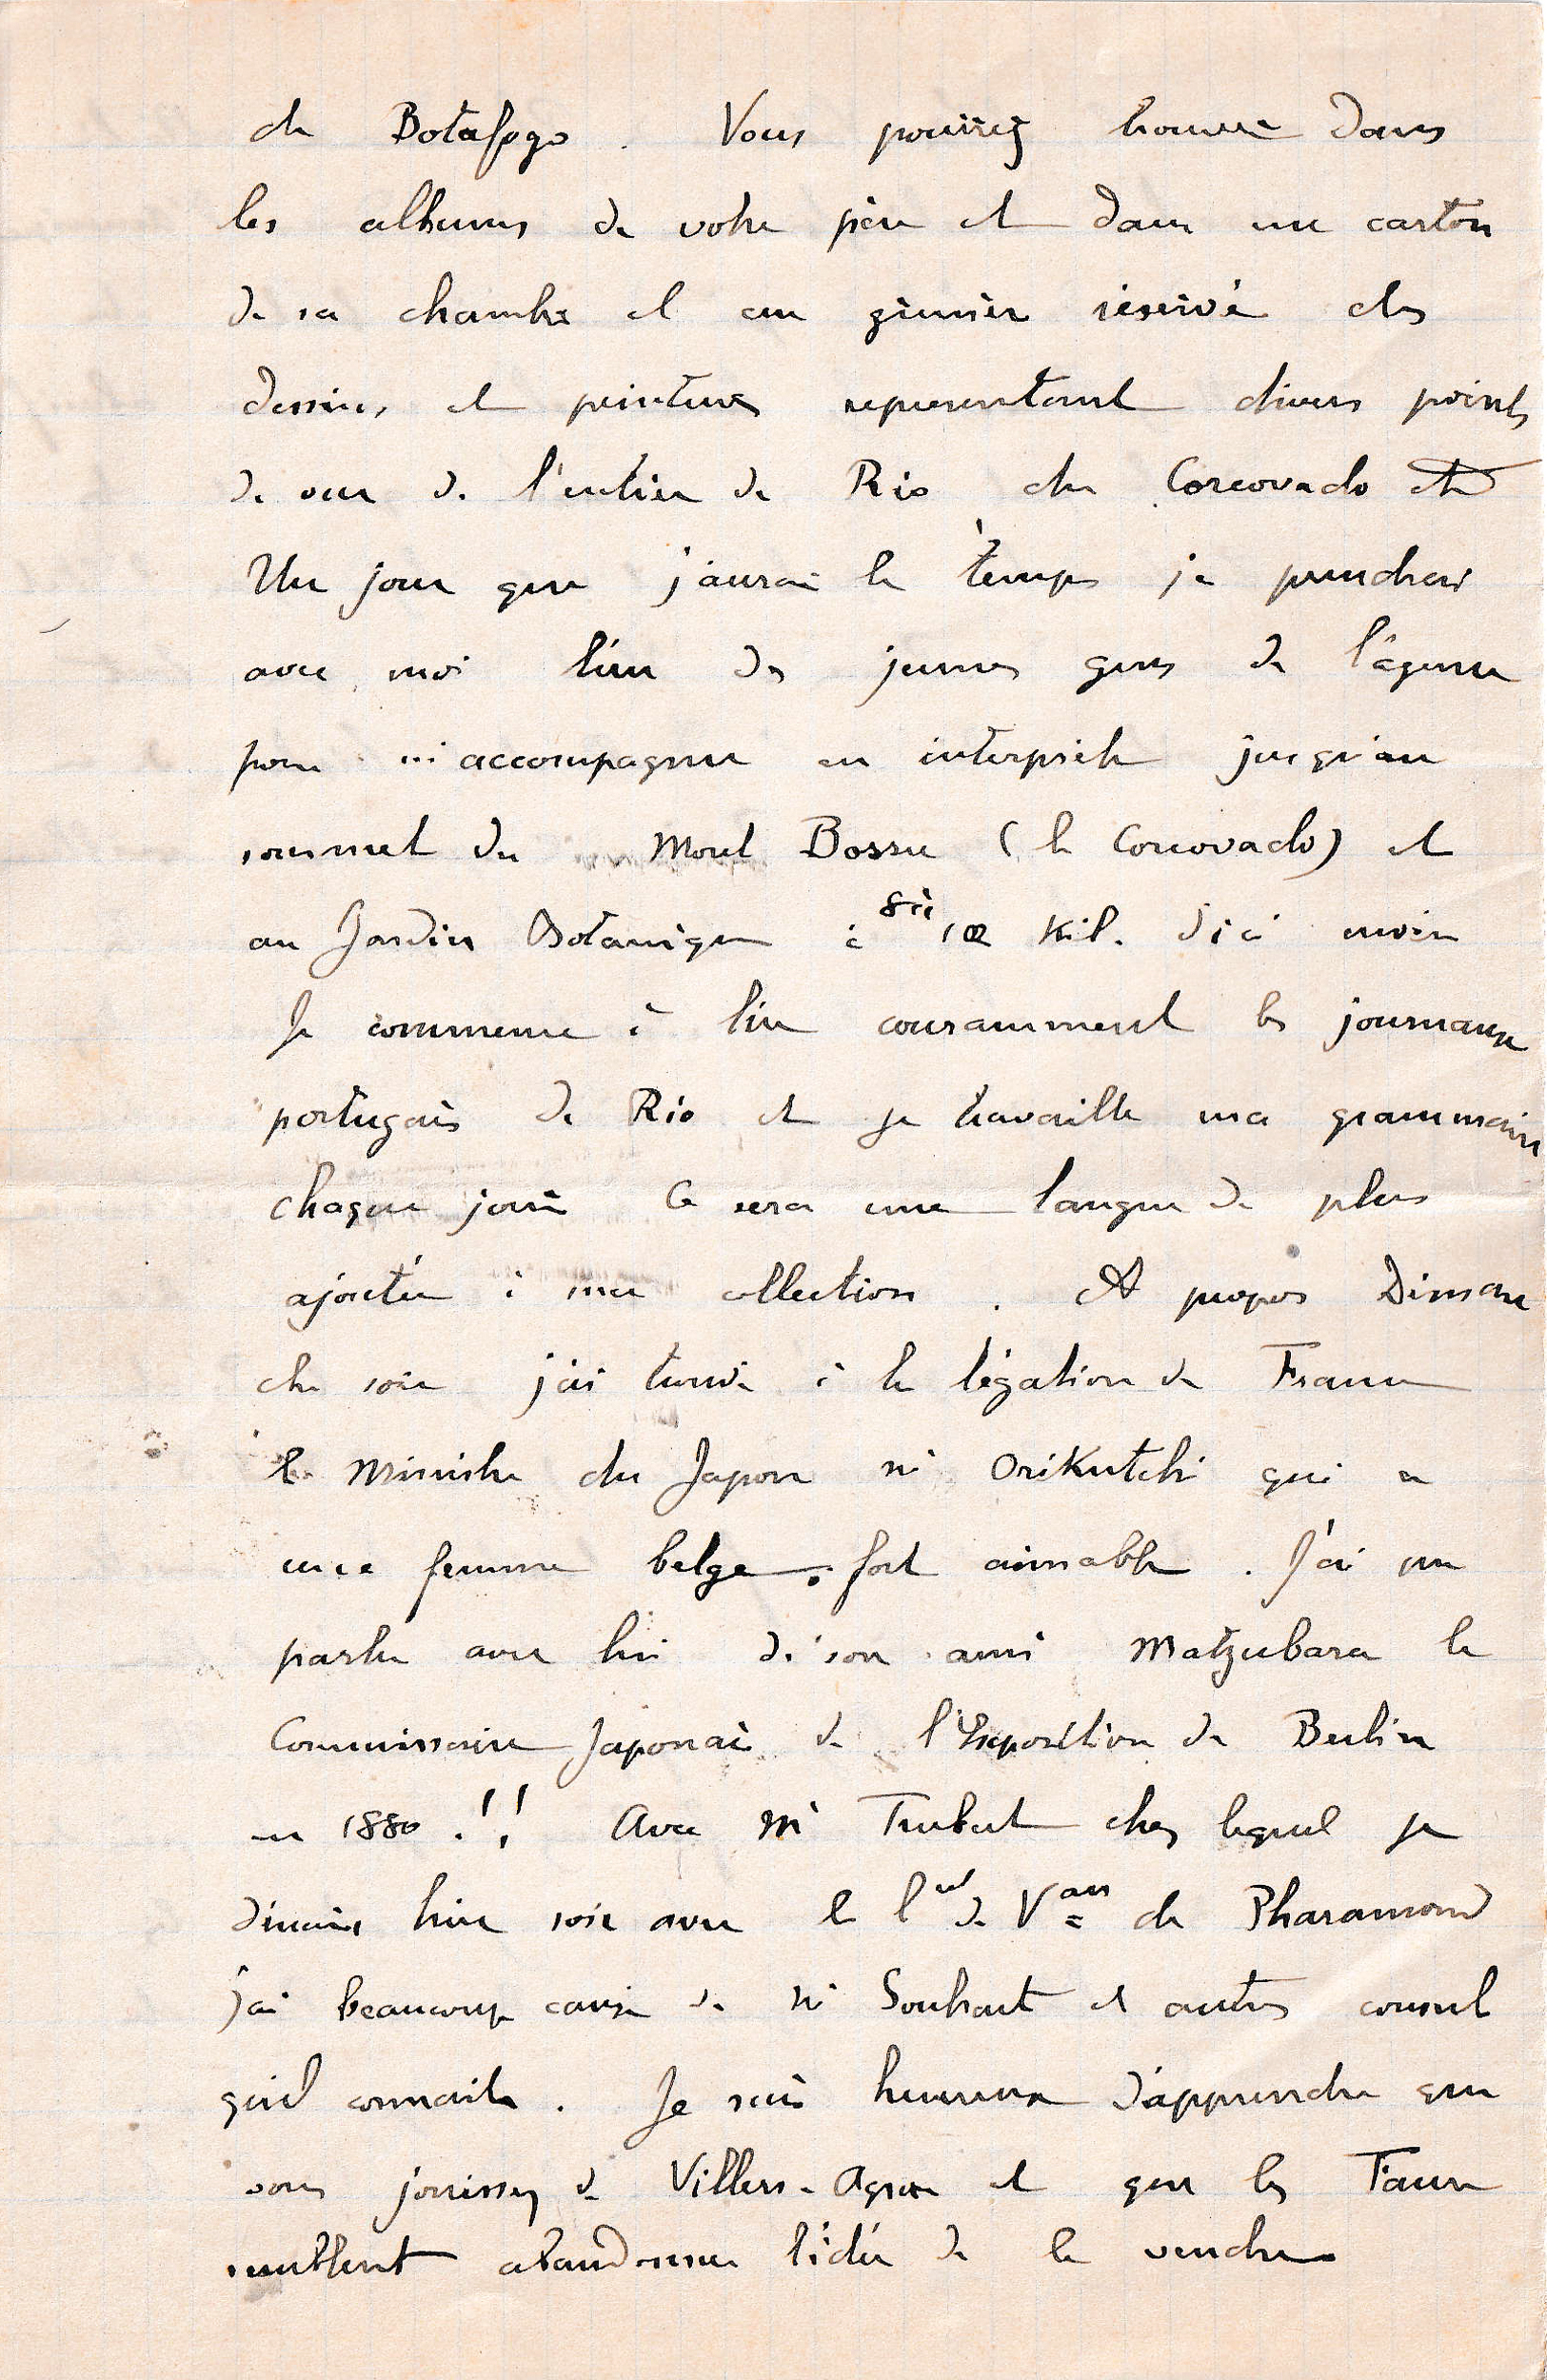 de Botafogo. Vous pourrez trouver dans
les albums de votre père et dans un carton
de sa chambre et au grenier réservé des
dessins, et peintures representant divers points
de vue de l'entrée de Rio du Corcovado etc
Un jour que j'aurai le temps je prendrai
avec moi l'un des jeunes gens de l'agence
pour m'accompagner en interprète jusqu'au
sommet du Mont Bossu (le Corcovado) et
au Jardin Botanique à 8 à 10 Kil. d'ici environ
Je commence à lire couramment les journaux
portugais de Rio et je travaille ma grammaire
chaque jour Ce sera une langue de plus
ajoutée à ma collection. A propos Diman
che soir j'ai trouvé à la légation de France
le Ministre du Japon Mr Orikutchi qui a
une femme belge, fort aimable. J'ai pu
parler avec lui de son ami Matzubara le
Commissaire Japonais de l'Exposition de Berlin
en 1880.!! Avec Mr Trubert chez lequel je
dinais hier soir avec le lnt de Vau de Pharamond
j'ai beaucoup causé de Mr Souhart et autres consul
qu'il connait. Je suis heureux d'apprendre que
vous jouissez de Villers-Agron et que les
semblent abandonner l'idée de le vendre